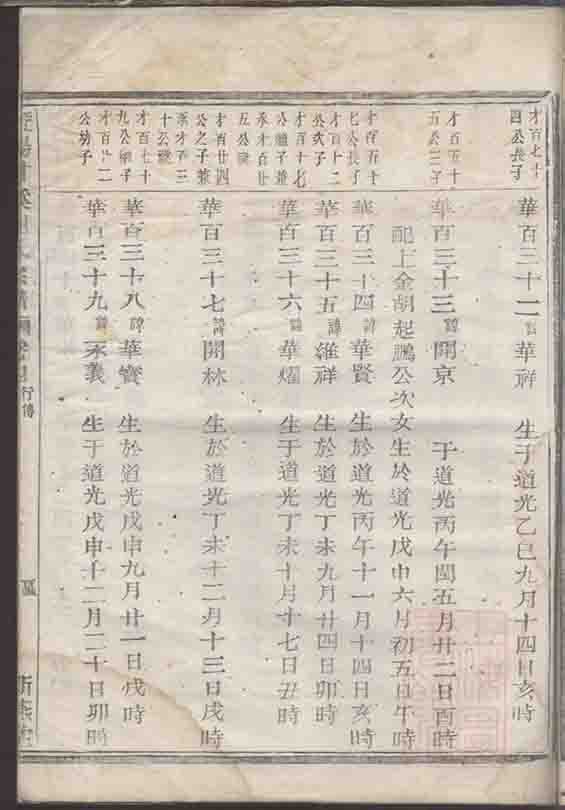 才百七十
四公長子
華百三十二諱華祥 生于道光乙巳九月十四日亥時
才百五十
五公三子
華百三十三諱開京 于道光丙午閏五月廿二日酉時
配上金胡起鵬公次女生於道光戊申六月初五日午時
才百五十
七公長子
華百三十四諱華賢 生於道光丙午十一月十四日亥時
才百十二
公次子
華百三十五諱維祥 生於道光丁未九月廿四日卯時
才百十七
公繼子兼
承才百廿
五公祧
華百三十六諱華燿 生于道光丁未十月十七日丑時
才百廿四
公之子兼
承才百三
十公祧
華百三十七諱開林 生於道光丁未十二月十三日戌時
才百七十
九公繼子
華百三十八諱華賓 生於道光戊申九月廿一日戌時
才百
公幼子
華百三十九諱永義 生于道光戊申十二月二十日卯時
行傳